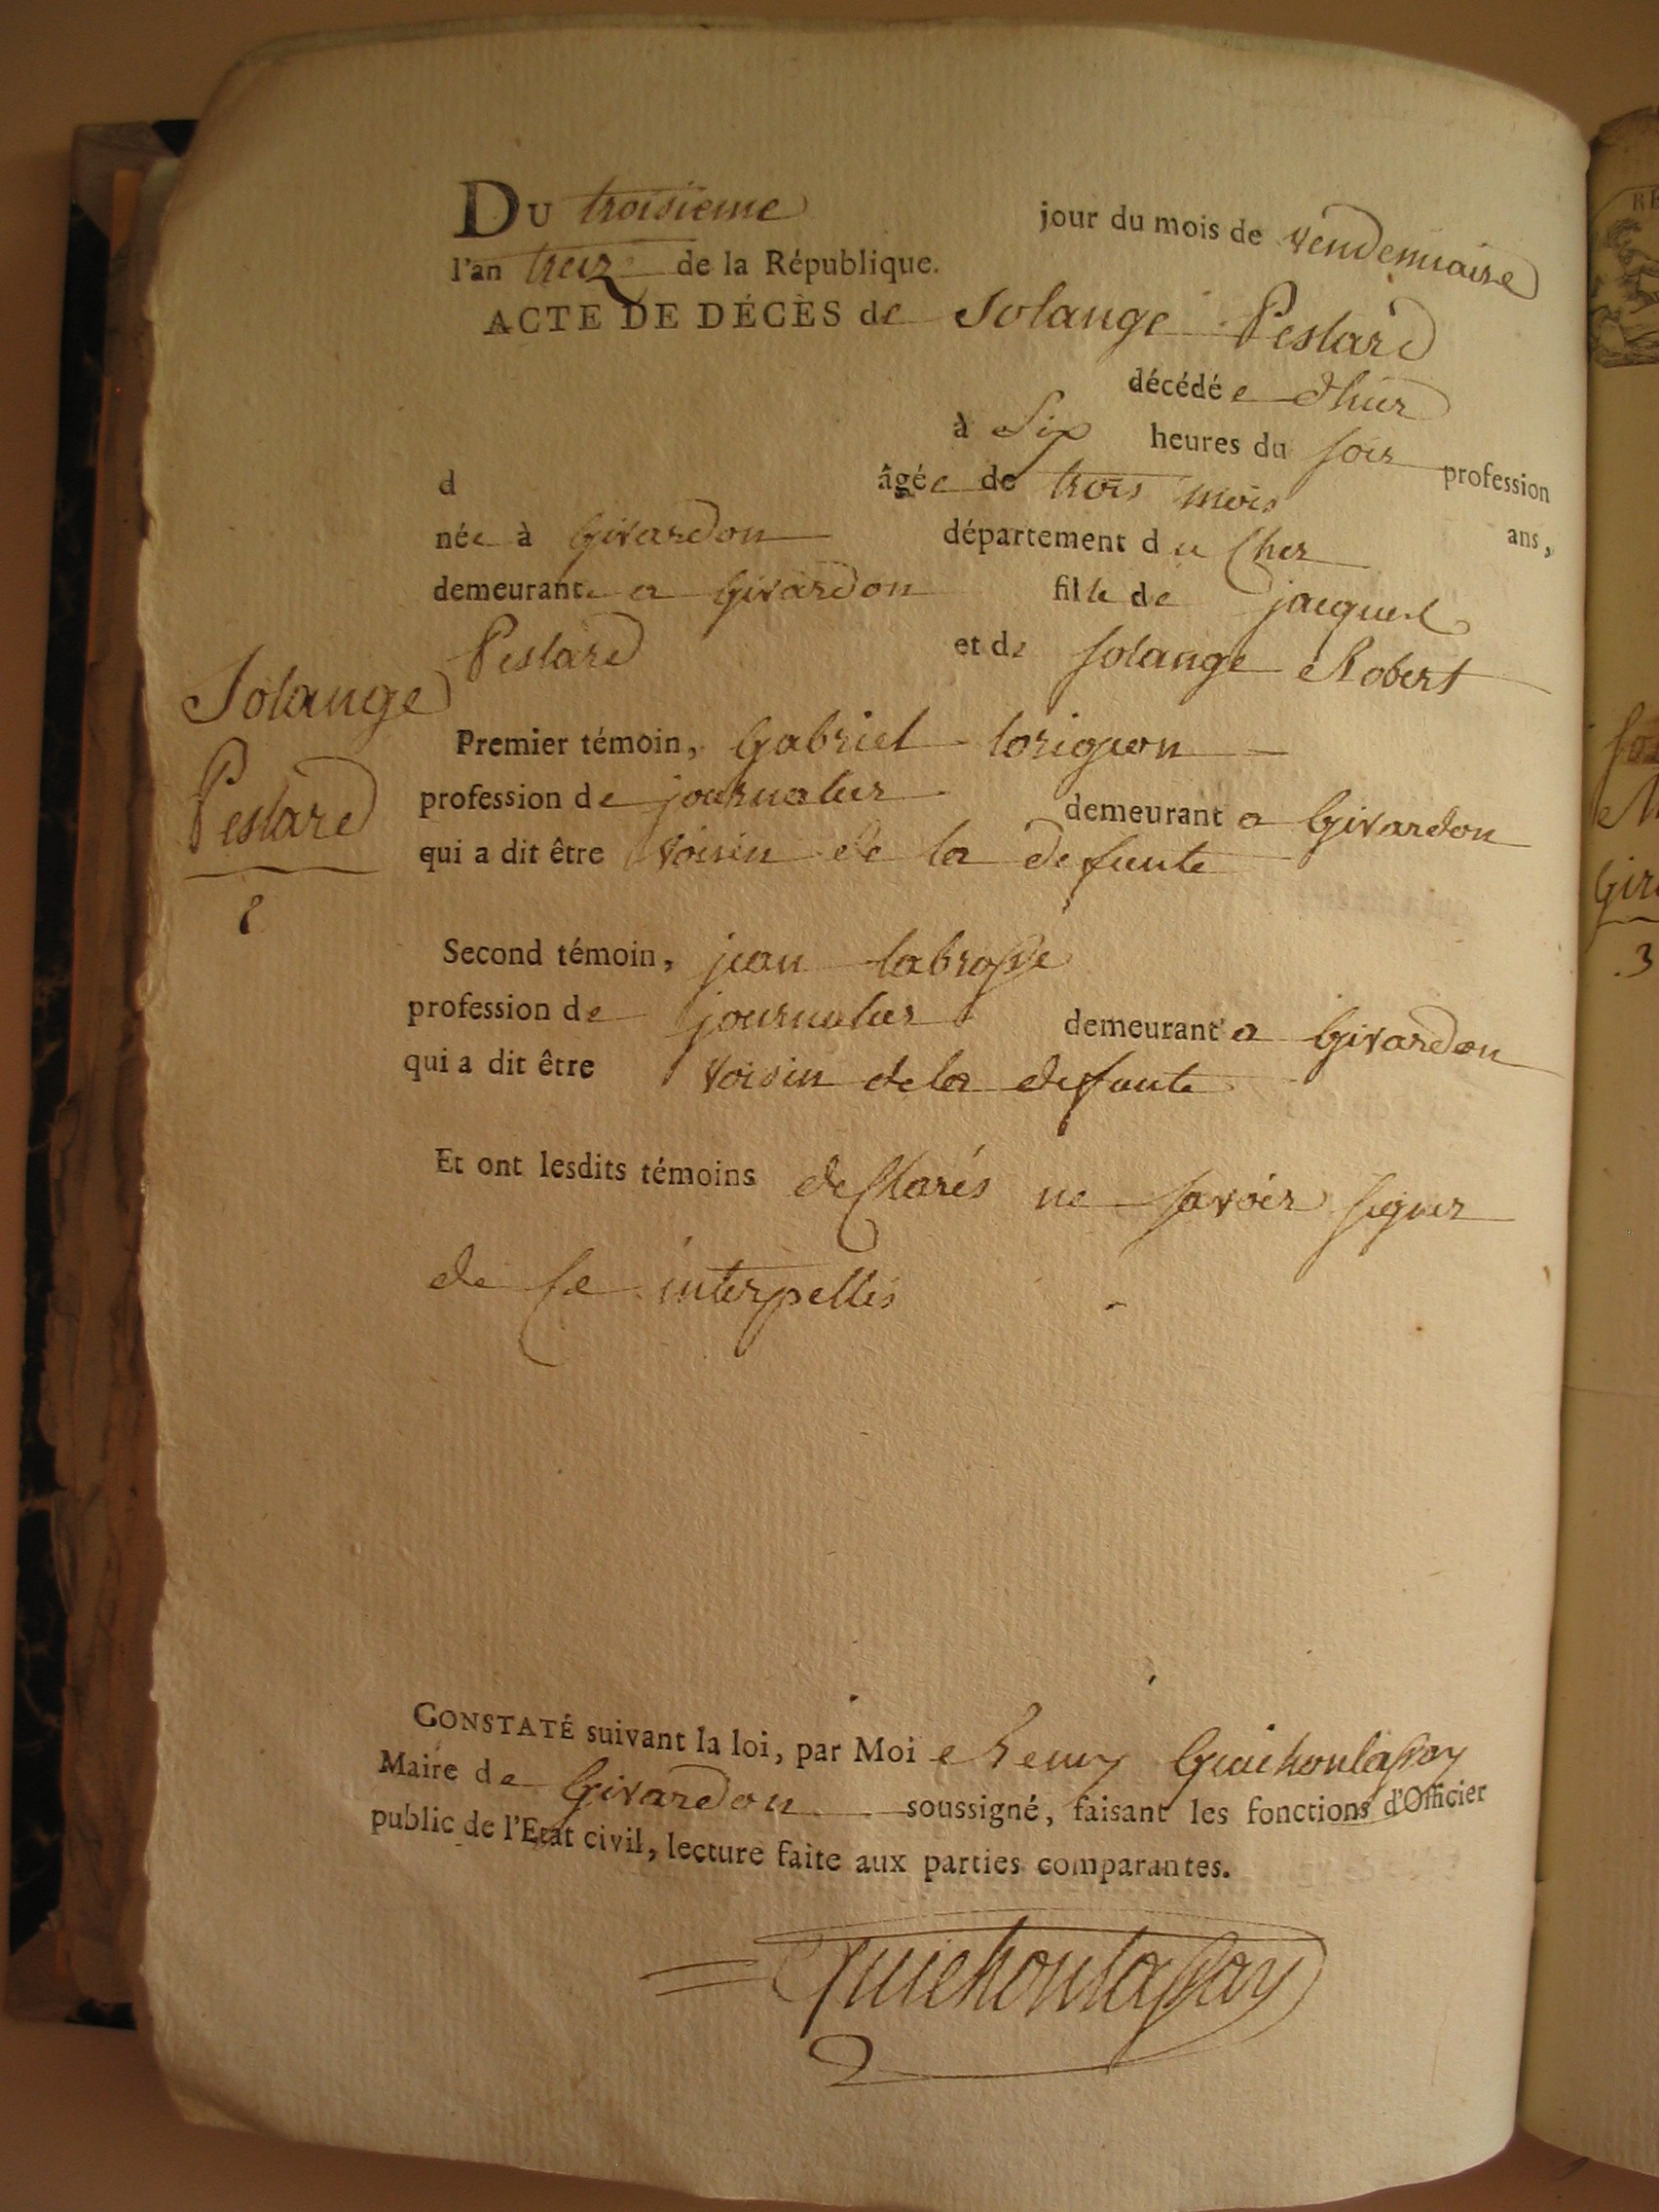 DU troisieme jour du mois de vendemiaire
l'an treiz de la République.
ACTE DE DÉCÈS de Solange Peslard
décédée d'hier
à Six heures du soir profession
d âgée de trois mois ans,
née à Givardon département du Cher
demeurante a Givardon fille de jacques
Peslard et de solange Robert
Solange
Peslard
2
Premier témoin, Gabriel lorignon
profession de journalier demeurant a Givardon
qui a dit être voisin de la defunte
Second témoin, jean labrosse
profession de journalier demeurant a Givardon
qui a dit être voisin de la defunte
Et ont lesdits témoins declarés ne savoir signer
de ce interpellés
CONSTATÉ suivant la loi, par Moi
Maire de Givardon soussigné, faisant les fonctions d'Officier
public de l'Etat civil, lecture faite aux parties comparantes.
3